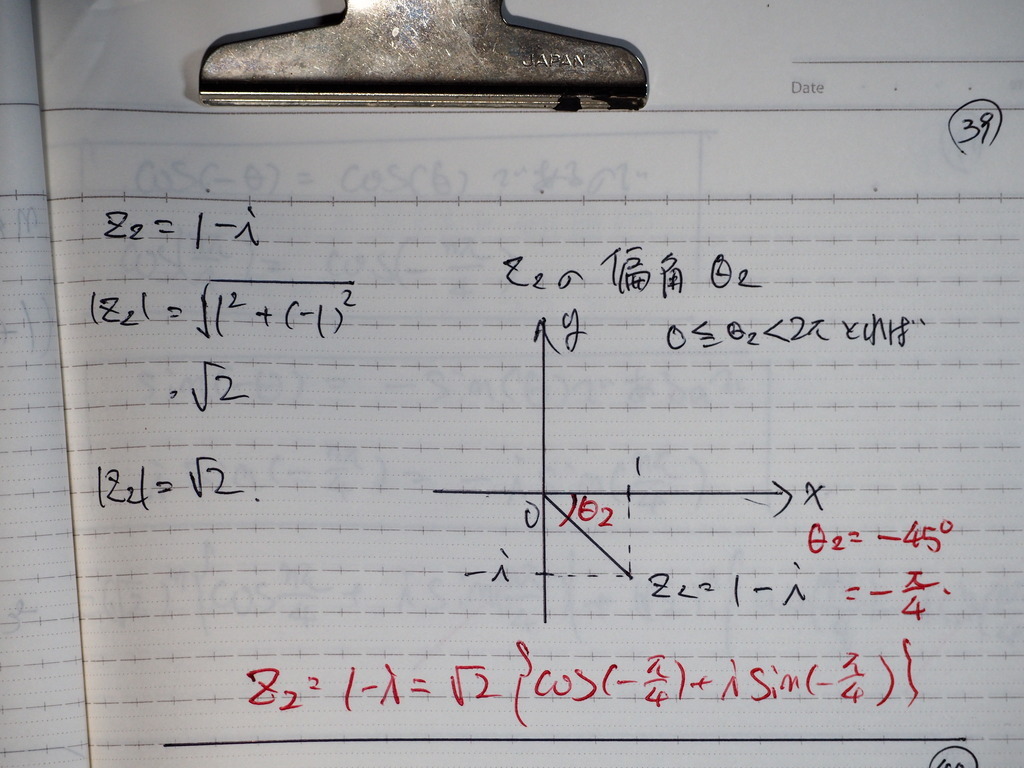 JAPAN
Date
39
z₂ = 1-i
|z₂| = √(1²+(-1)²)
= √2
|z₂| = √2.
z₂の 偏角 θ₂
0 ≦ θ₂ < 2π とすれば
y
1
0
θ₂
x
θ₂ = -45°
-i
z₂ = 1-i
= -π/4.
z₂ = 1-i = √2 {cos(-π/4)+i sin(-π/4)}